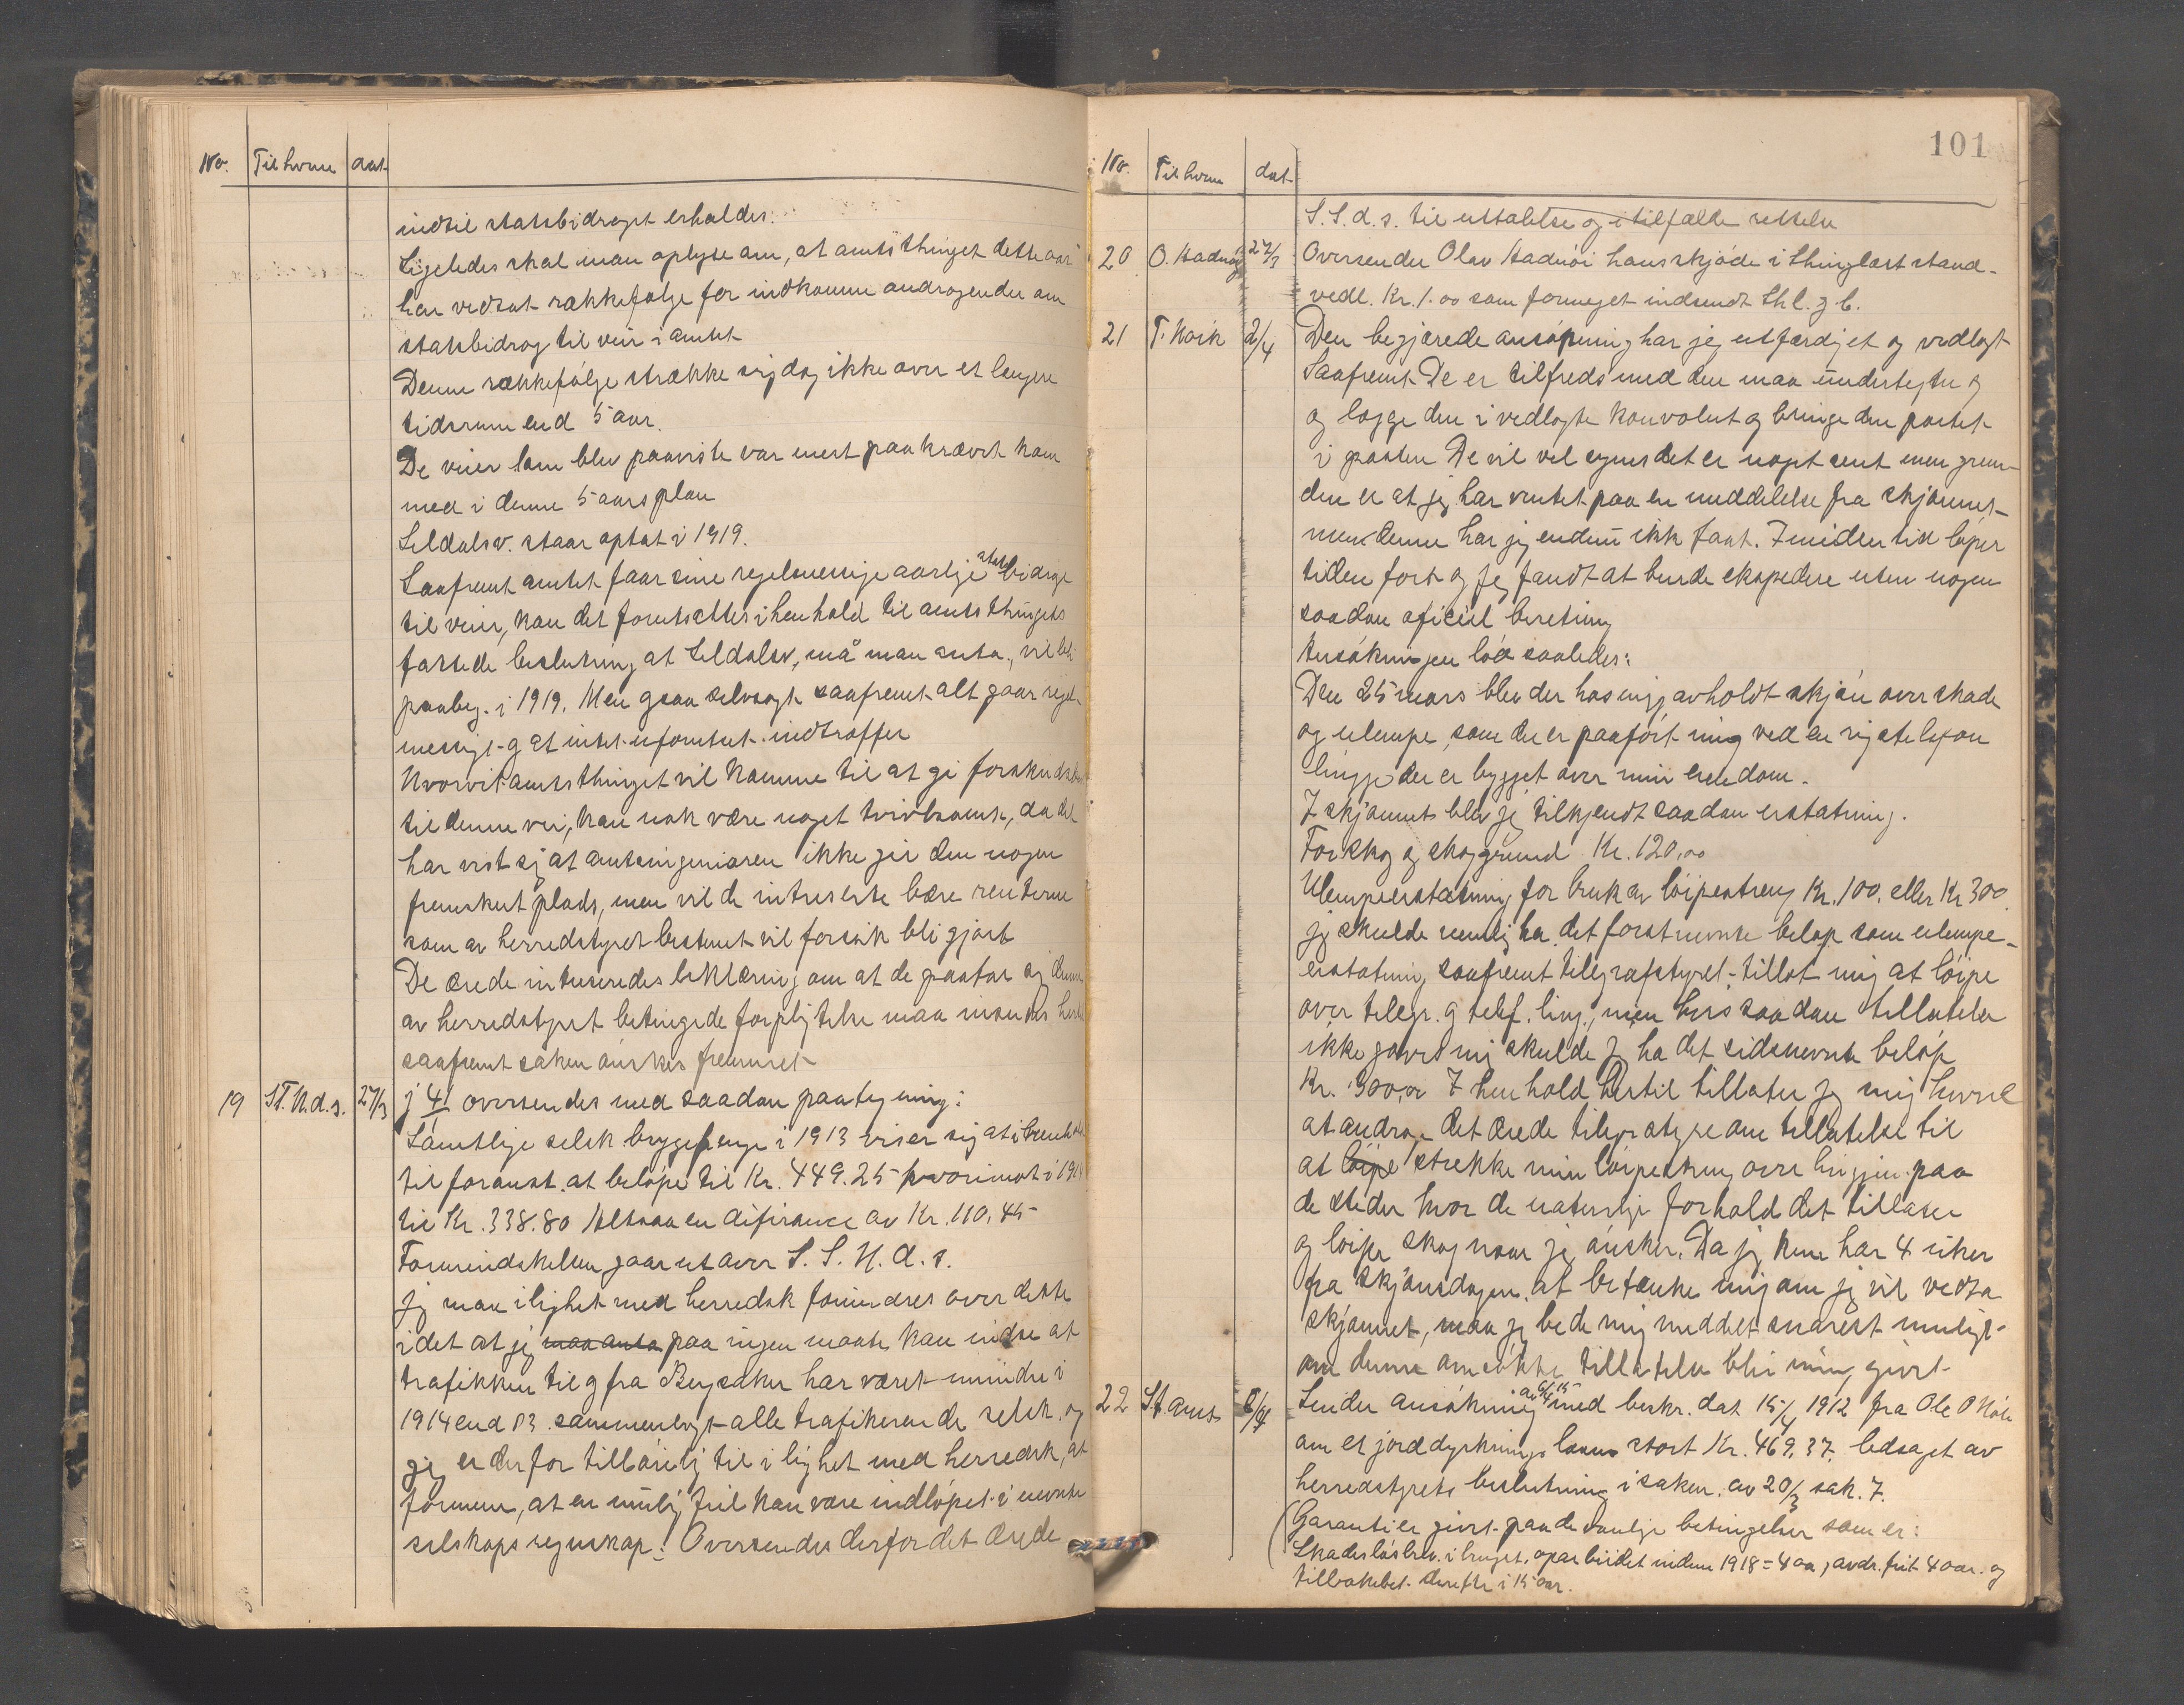 No. Til hvem dat
indtil statsbidraget erholdes.
Ligeledes skal man oplyse om, at amtsthinget dette aar
har vedtat rækkefølge for indkomne andragender om
statsbidrag til veir i amtet
Denne rækkefølge strække sig dog ikke over et længere
tidsrum end 5 aar.
De veier som blev paaviste var mest paakrævet kom
med i denne 5 aars plan
Seldalsv. staar optat i 1919.
Saafremt amtet faar sine regelmessige aarlige stats bidrage
til veier, kan det forutsættes i henhold til amtsthingets
fattede beslutning at Seldalsv, må man anta, vil bli
paabeg. i 1919. Men gsaa selvsagt saafremt alt gaar regel-
messigt g at intet uforutset indtræffer
Hvorvit amtsthinget vil komme til at gi forskudsb
til denne vei, kan nok være noget tvivlsomt, da det
har vist sig at amtsingeniøren ikke gir den nogen
fremskut plads, men vil de intreserte bære renterne
som av herredstyret bestemt vil forsøk bli gjort
De ærede intreseredes erklæring om at de paatar sig denne
av herredstyret betingede forpligtelse maa
saafremt saken ønskes fremmet
19 ST. N. d. s. 27/3 j 4/1 oversendes med saadan paategning:
Samtlige selsk. bryggepenge i 1913 viser sig at i henhold
til foranst. at beløpe til Kr. 449.25 hvorimot i 1914
til Kr. 338.80 Altsaa en diferance av Kr. 110.45
Formindskelsen gaar ut over S. S. N. d. s.
Jeg maa i lighet med herredsk forundres over dette
idet at jeg maa anta paa ingen maate kan indse at
trafikken til g fra Bergsaker har været mindre i
1914 end 13. sammenlagt alle trafikerende selsk. og
jeg er derfor tilbøielig til i lighet med herredsk, at
formene, at en mulig feil kan være indløpet i nevnte
selskaps regnskap. Oversendes derfor det ærede
101
No. Til hvem dat
S. S. d. s. til uttalelse og i tilfælde rettelse
20 O. Hadnøi 27/3 Oversender Olav Hadnøi hans skjøde i thinglæst stand.
vedl. Kr. 1.00 som formeget indsendt thl. geb.
21 T. 2/4 Den begjærede ansøkning har jeg utfærdiget og vedlagt
Saafremt De er tilfreds med den maa undertegne g
og lægge den i vedlagte konvolut og bringe den postet
i posten De vil vel synes det er noget sent men grun-
den er at jeg har ventet paa en meddelelse fra skjønnet
men denne har jeg endnu ikk faat. Imidlertid løper
tiden fort og jeg fandt at burde ekspedere uten nogen
saadan oficiel beretning
Ansøkningen lød saaledes:
Den 25 mars blev der hos mig avholdt skjøn over skade
og ulempe som der er paaført mig ved en
linje der er bygget over min eiendom.
I skjønnet blev jeg tilkjendt saadan erstatning.
For skog og skoggrund Kr. 120,00
Ulempeerstatning for bruk av løipestreng Kr. 100. eller Kr 300.
jeg skulde nemlig ha det først nevnte beløp som ulempe-
erstatning saafremt telegrafstyret tillot mig at løipe
over telegr. g telf. linj., men hvis saadan tillatelse
ikke gaves mig skulde jg ha det sidsnevnte beløp
Kr. 300,00 I henhold hertil tillater jeg mig herved
at andrage det ærede telegrafstyre om tillatelse til
at løipe strekke min løipestreng over linjen paa
de steder hvor de naturlige forhold det tillater
og løipe skog naar jeg ønsker. Da jeg kun har 4 uker
fra skjønsdagen at betænke mig om jeg vil vedta
skjønnet, maa jeg bede mig meddelt snarest muligt
om denne ansøkte tillatelse blir mig givet.
22 St. amt 8/4 Sender ansøkning av 6/4 15 med beskr. dat 15/4 1912 fra Ole O
om et jorddyrkningslaan stort Kr. 469,37. ledsaget av
herredstyrets beslutning i saken. av 20/3 sak. 7.
(Garanti er givet paa de vanlige betingelser som er:
Skadesløsbrev. i bruget. oparbeidet inden 1918 = 4 aa, avdr. frit 4 aar. og
tilbakebet. derefter i 15 aar.